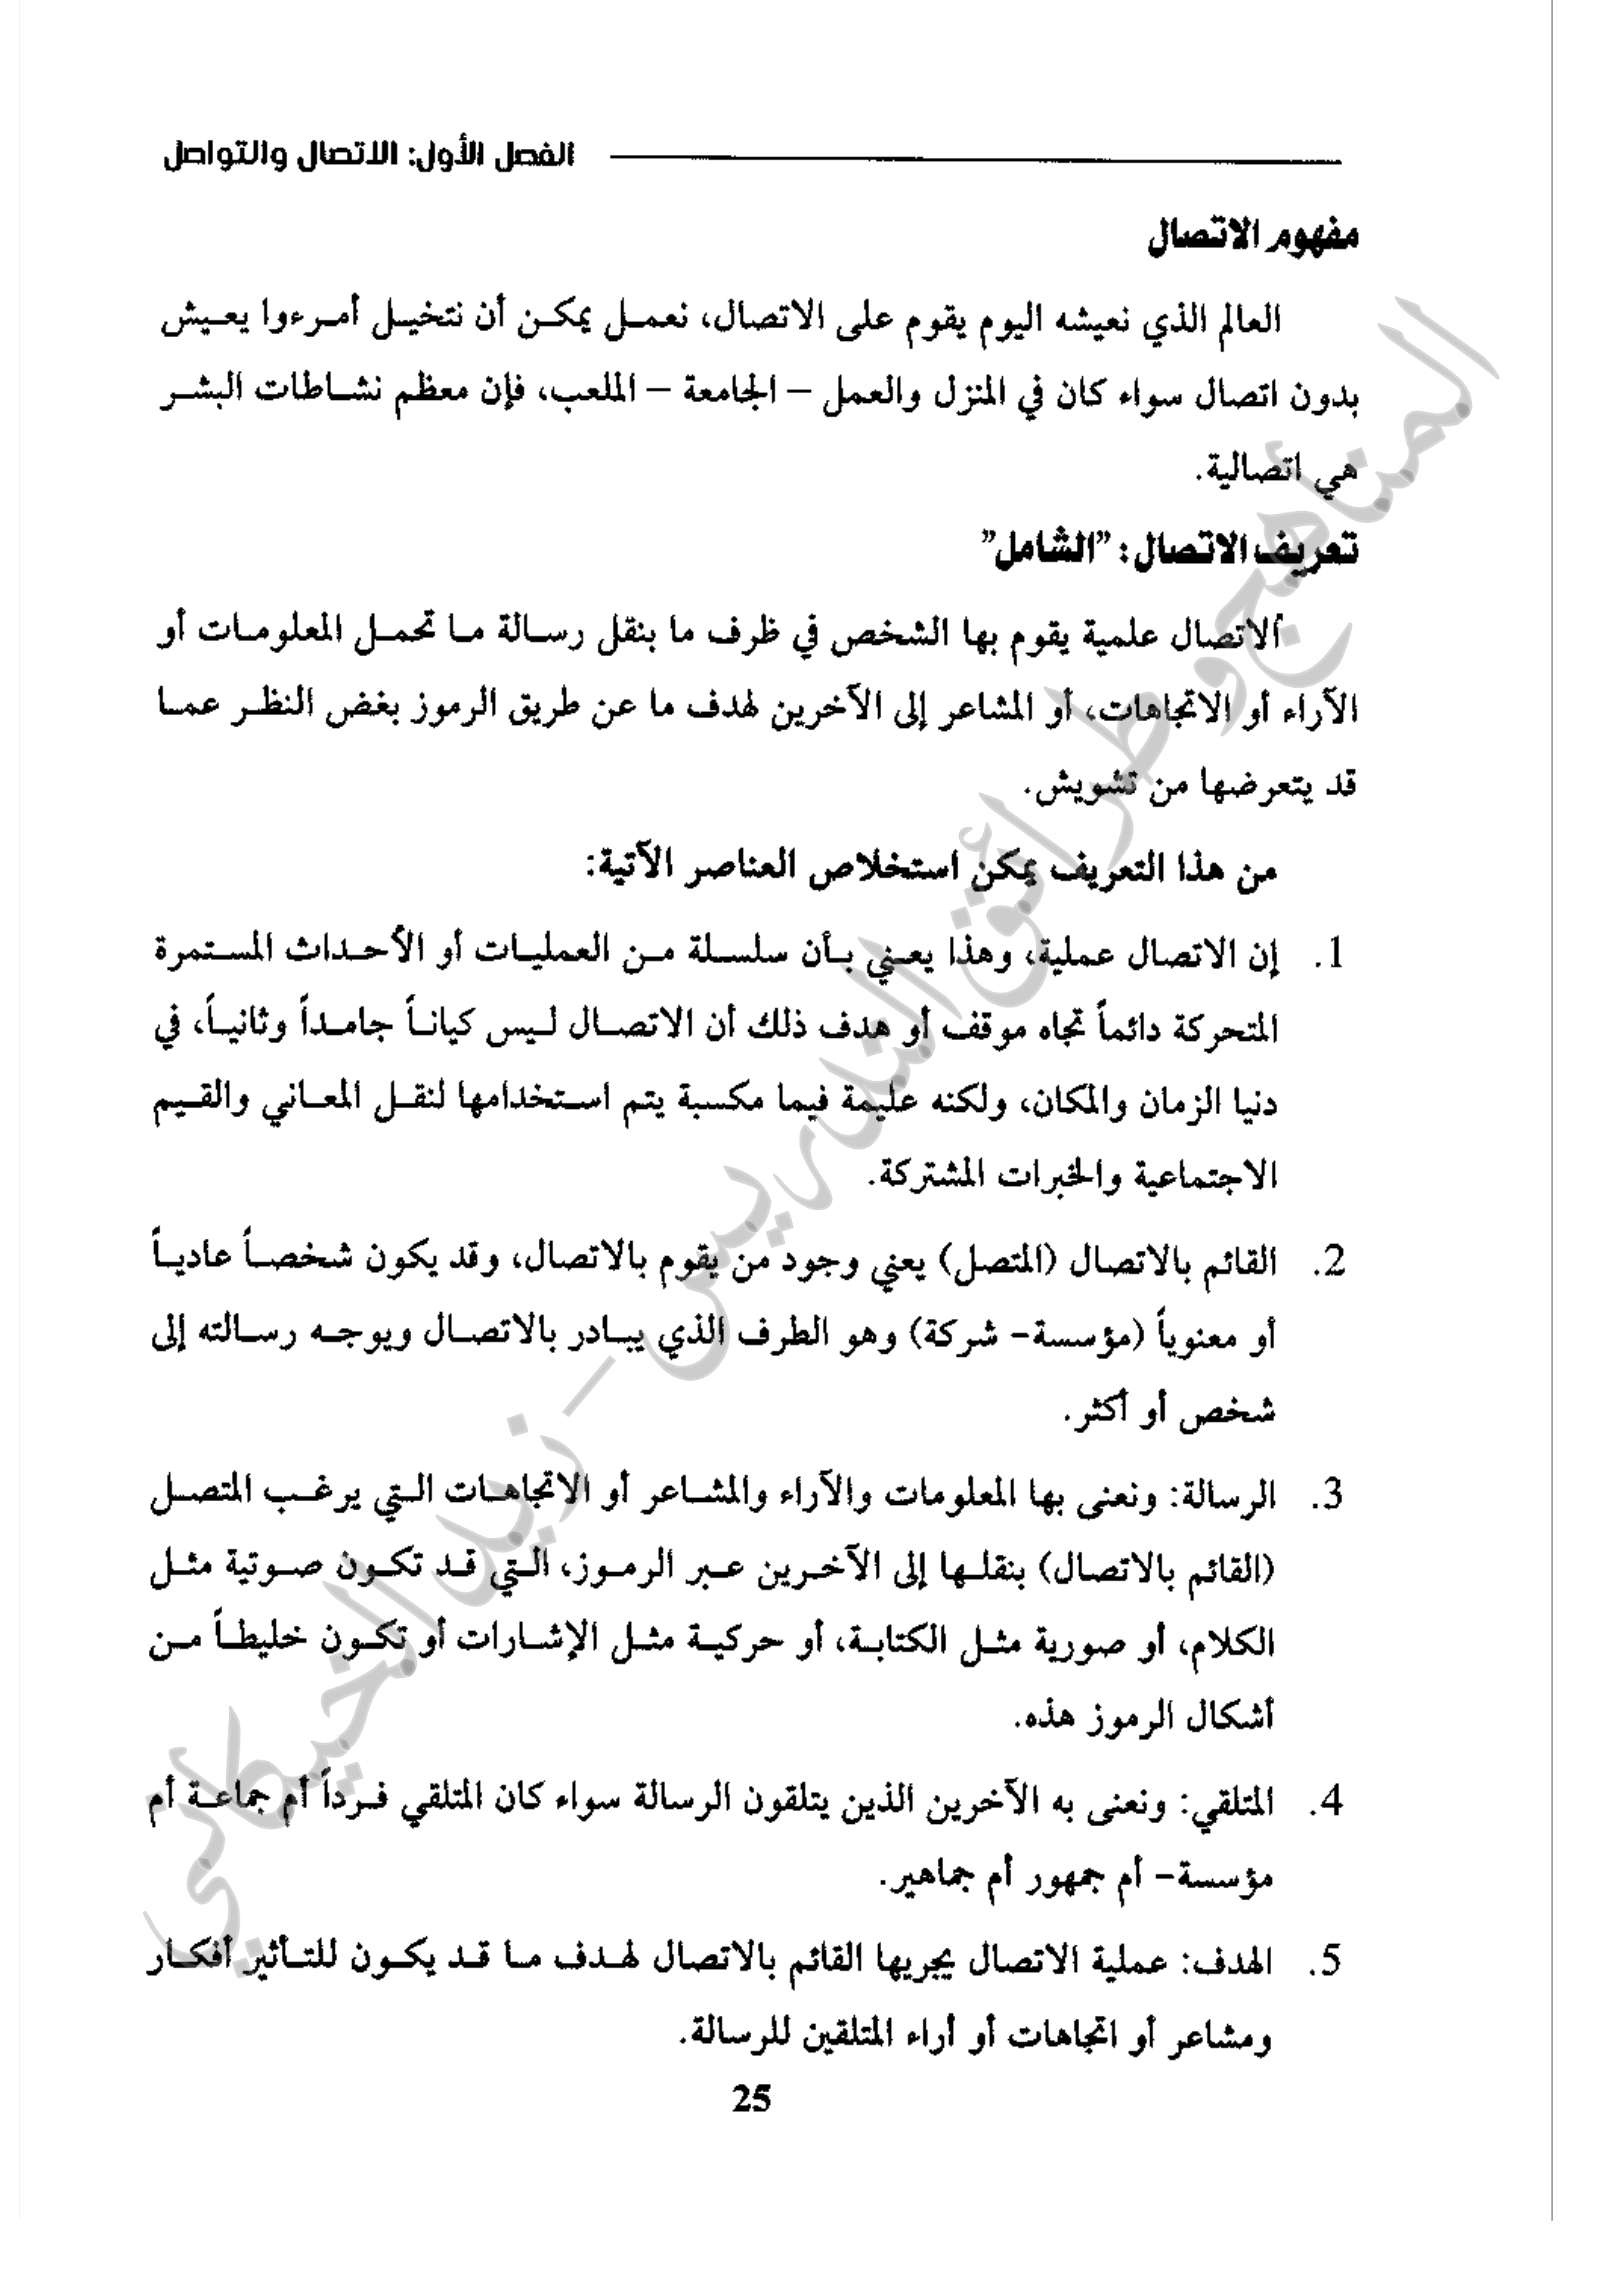 الفصل الأول: الاتصال والتواصل
مفهوم الاتصال
العالم الذي نعيشه اليوم يقوم على الاتصال، نعمل يمكن أن نتخيل أمرءوا يعيش
بدون اتصال سواء كان في المنزل والعمل – الجامعة – الملعب، فإن معظم نشاطات البشر
هي اتصالية.
تعريف الاتصال: "الشامل"
ألاتصال علمية يقوم بها الشخص في ظرف ما بنقل رسالة ما تحمل المعلومات أو
الآراء أو الاتجاهات، أو المشاعر إلى الآخرين لهدف ما عن طريق الرموز بغض النظر عما
قد يتعرضها من تشويش.
من هذا التعريف يمكن استخلاص العناصر الآتية:
1. إن الاتصال عملية، وهذا يعني بأن سلسلة من العمليات أو الأحداث المستمرة
المتحركة دائماً تجاه موقف أو هدف ذلك أن الاتصال ليس كياناً جامداً وثانياً، في
دنيا الزمان والمكان، ولكنه عليمة فيما مكسبة يتم استخدامها لنقل المعاني والقيم
الاجتماعية والخبرات المشتركة.
2. القائم بالاتصال (المتصل) يعني وجود من يقوم بالاتصال، وقد يكون شخصاً عادياً
أو معنوياً (مؤسسة- شركة) وهو الطرف الذي يبادر بالاتصال ويوجه رسالته إلى
شخص أو أكثر.
3. الرسالة: ونعنى بها المعلومات والآراء والمشاعر أو الاتجاهات التي يرغب المتصل
(القائم بالاتصال) بنقلها إلى الآخرين عبر الرموز، التي قد تكون صوتية مثل
الكلام، أو صورية مثل الكتابة، أو حركية مثل الإشارات أو تكون خليطاً من
أشكال الرموز هذه.
4. المتلقي: ونعنى به الآخرين الذين يتلقون الرسالة سواء كان المتلقي فرداً أم جماعة أم
مؤسسة- أم جمهور أم جماهير.
5. الهدف: عملية الاتصال يجريها القائم بالاتصال لهدف ما قد يكون للتأثير أفكار
ومشاعر أو اتجاهات أو أراء المتلقين للرسالة.
25
المناهج وطرائق التدريس – زيد الخيكاني